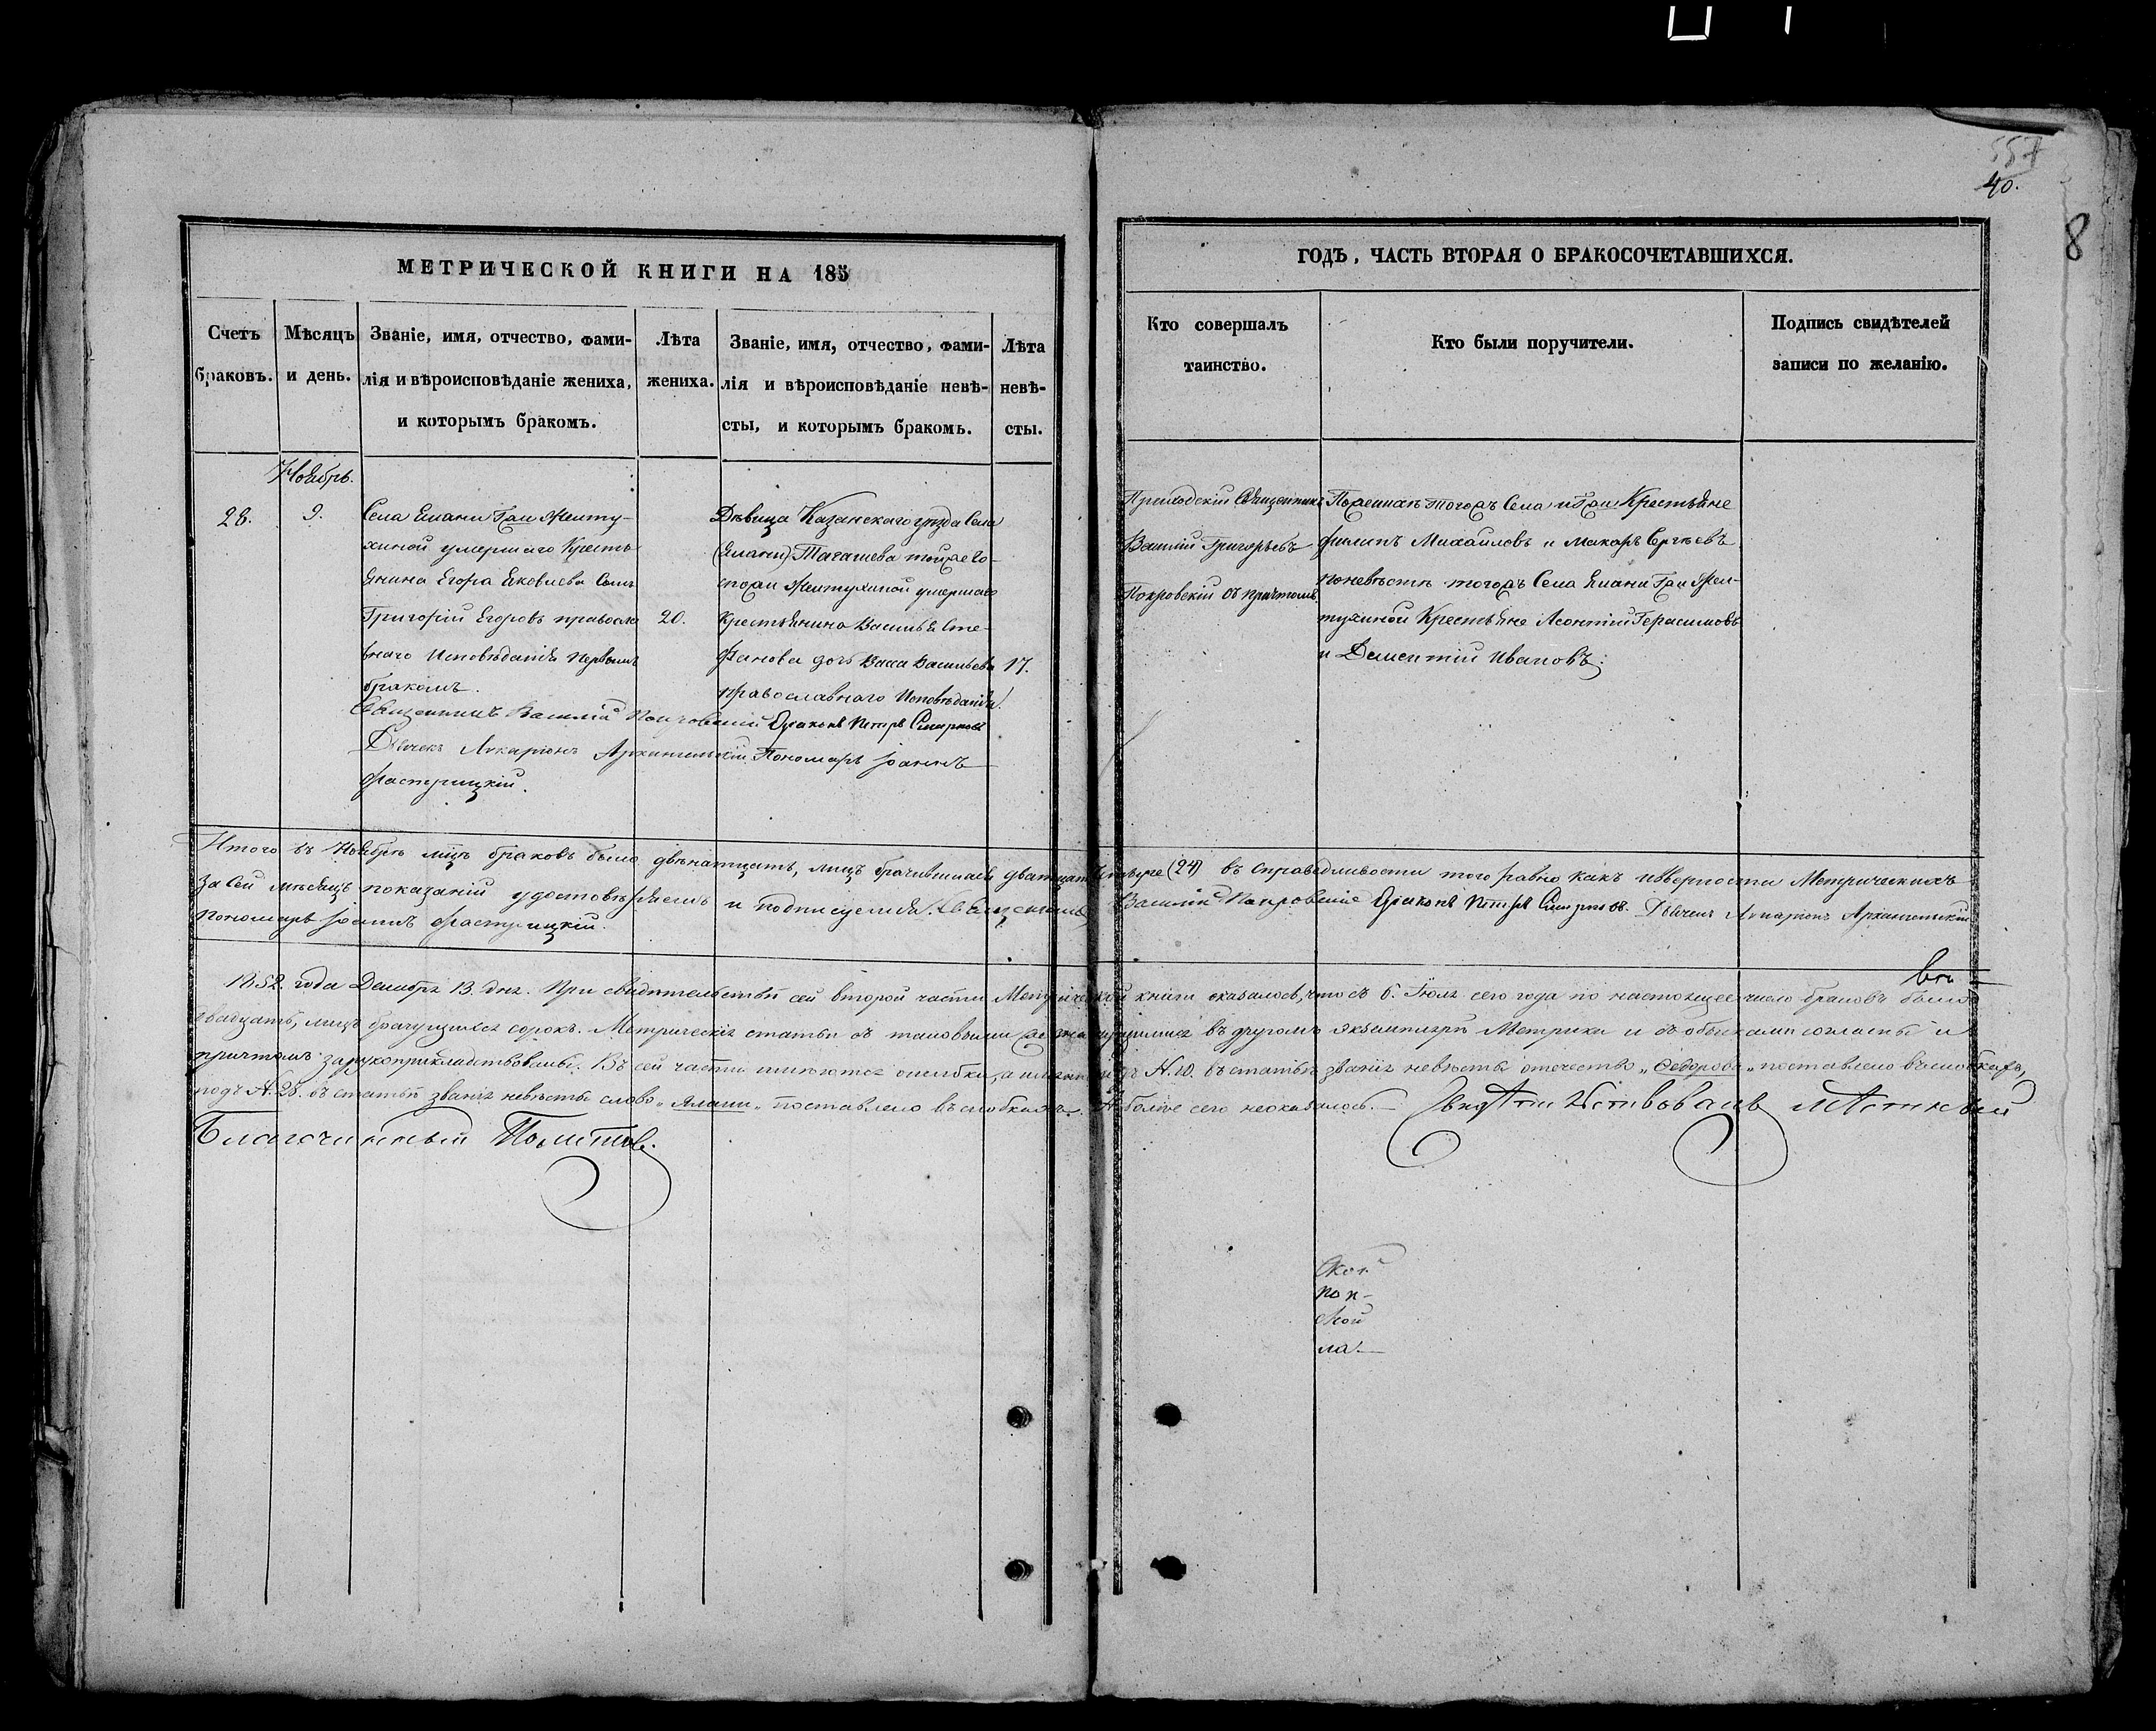 557
40.
8
МЕТРИЧЕСКОЙ КНИГИ НА 185
ГОДЪ, ЧАСТЬ ВТОРАЯ О БРАКОСОЧЕТАВШИХСЯ.
Счетъ
браковъ.
Мѣсяцъ
и день.
Званіе, имя, отчество, фами-
лія и вѣроисповѣданіе жениха,
и которымъ бракомъ.
Лѣта
жениха.
Званіе, имя, отчество, фами-
лія и вѣроисповѣданіе невѣ-
сты, и которымъ бракомъ.
Лѣта
невѣ-
сты.
Кто совершалъ
таинство.
Кто были поручители.
Подпись свидѣтелей
записи по желанію.
Ноябрь.
28.
9.
Села Елани Гжи Желту-
хиной умершаго Кресть-
янина Егора Яковлева сынъ
Григорій Егоровъ правосла
внаго Исповѣданія первымъ
бракомъ.
20.
Дѣвица Казанскаго уѣзда Села
(Елани) Тагашева тойже Го-
спожи Желтухиной умершаго
Крестьянина Василья Сте-
фанова дочь Васса Васильева
православнаго Исповѣданія.
17.
Священникъ Василій Покровскій Діаконъ Петръ Смирновъ
Дьячекъ Иларіонъ Архангельскій Пономарь Іоаннъ
Фастрицкій.
Приходскій Священникъ
Василій Григорьевъ
Покровскій съ причтомъ.
По женихѣ тогожъ Села и Гжи Крестьяне
Филипъ Михайловъ и Макаръ Сергѣевъ
по невѣстѣ тогожъ Села Елани Гжи Жел-
тухиной Крестьяне Леонтій Герасимовъ
и Дементій Ивановъ.
Итого въ Ноябрѣ мцѣ браковъ было двѣнатцать, лицъ брачившихся дватцать четыре (24) въ справедливости того равно какъ и вѣрности Метрическихъ
за сей мѣсяцъ показаній удостовѣряемъ и подписуемся. Священникъ Василій Покровскій Діаконъ Петръ Смирновъ. Дьячекъ Иларіонъ Архангельскій
Пономарь Іоаннъ Фастрицкій.
1852. года Декабря 13. дня. При свидѣтельствѣ сей второй части Метрической книги оказалось, что съ 6. Іюля сего года по настоящее число браковъ было
двадцать, лицъ брачущихся сорокъ. Метрическія статьи съ таковыми же въ другомъ экземплярѣ Метрики и съ обысками согласны и
причтомъ зарукоприкладствованы. Въ сей части имеются ошибки, а именно: подъ N. 10. въ статьѣ званія невѣсты отечество „Ѳедорова" поставлено въ скобкахъ,
подъ N. 28. въ статьѣ званія невѣсты слово „Елани" поставлено въ скобкахъ. А болѣе сего неоказалось. Свидѣтельствовалъ мѣстный
Благочинный
Скот
поп-
ской
ла